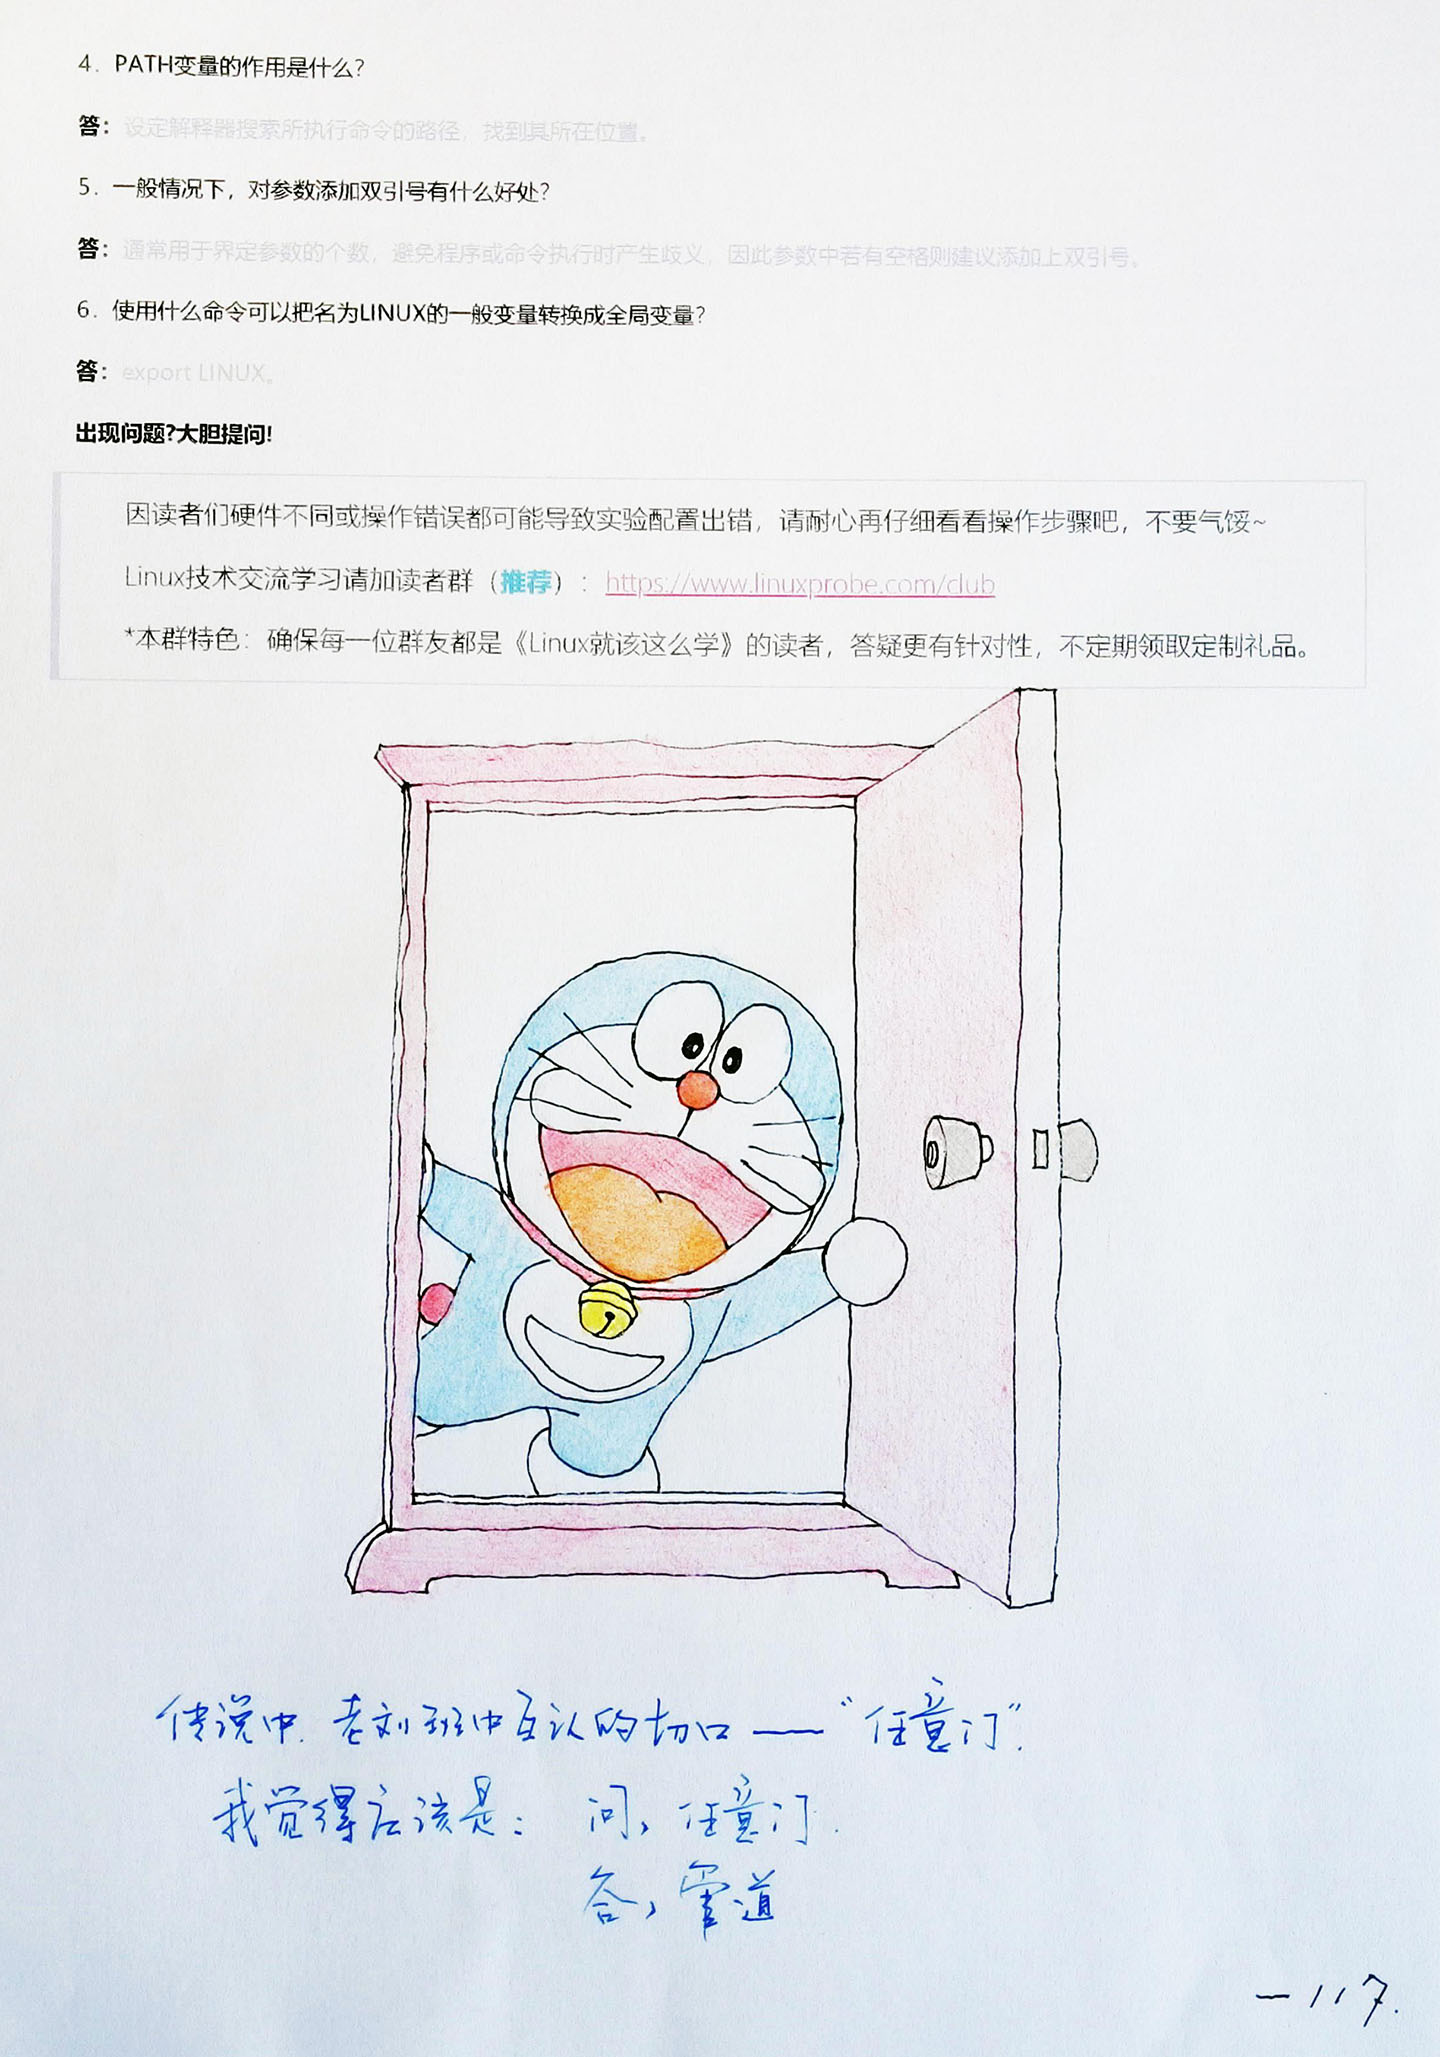 4. PATH变量的作用是什么?
答: 设定解释器搜索所执行命令的路径，找到其所在位置。
5. 一般情况下，对参数添加双引号有什么好处?
答: 通常用于界定参数的个数，避免程序或命令执行时产生歧义，因此参数中若有空格则建议添加上双引号。
6. 使用什么命令可以把名为LINUX的一般变量转换成全局变量?
答: export LINUX。
出现问题?大胆提问!
因读者们硬件不同或操作错误都可能导致实验配置出错，请耐心再仔细看看操作步骤吧，不要气馁~
Linux技术交流学习请加读者群（推荐）: https://www.linuxprobe.com/club
*本群特色: 确保每一位群友都是《Linux就该这么学》的读者，答疑更有针对性，不定期领取定制礼品。
传说中. 老刘班中互认的切口——“任意门”.
我觉得应该是: 问, 任意门.
答, 管道
—117.